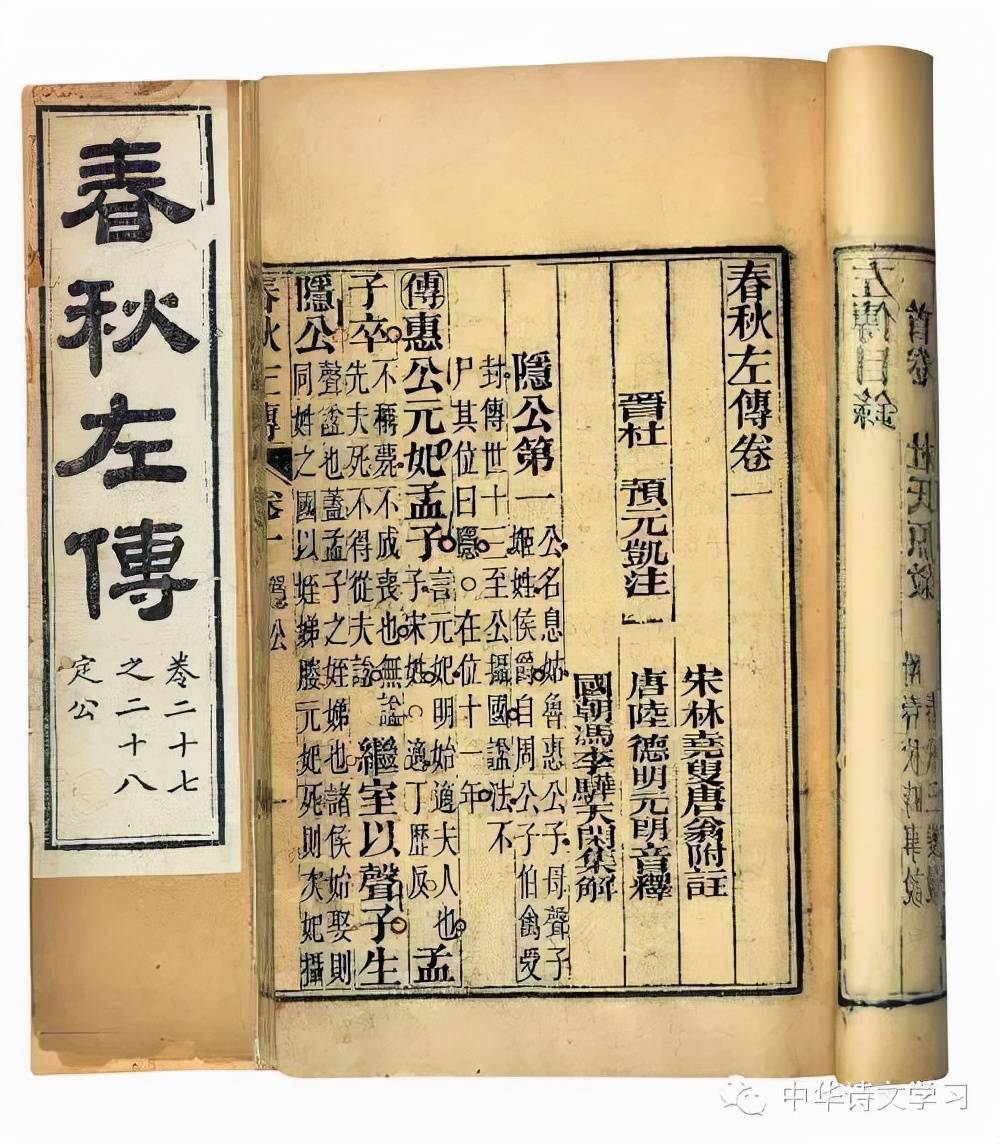 春秋左傳
卷二十七
之二十八
定公
左傳目錄
首卷
春秋左傳卷一
晉杜 預元凱注
宋林堯叟唐翁附註
唐陸德明元朗音釋
國朝馮李驊天閑集解
隱公第一
公名息姑魯惠公子母聲子
姬姓侯爵自周公子伯禽受
封傳世十三至公攝國諡法不
尸其位曰隱○在位十一年
傳惠公元妃孟子
言元妃明始適夫人也
子宋姓○適丁歷反
孟
子卒
不稱薨不成喪也無諡
先夫死不得從夫諡
繼室以聲子生
隱公
聲諡也蓋孟子之姪娣也諸侯始娶則
同姓之國以姪娣媵元妃死則次妃攝
春秋左傳 卷一 隱公
中华诗文学习